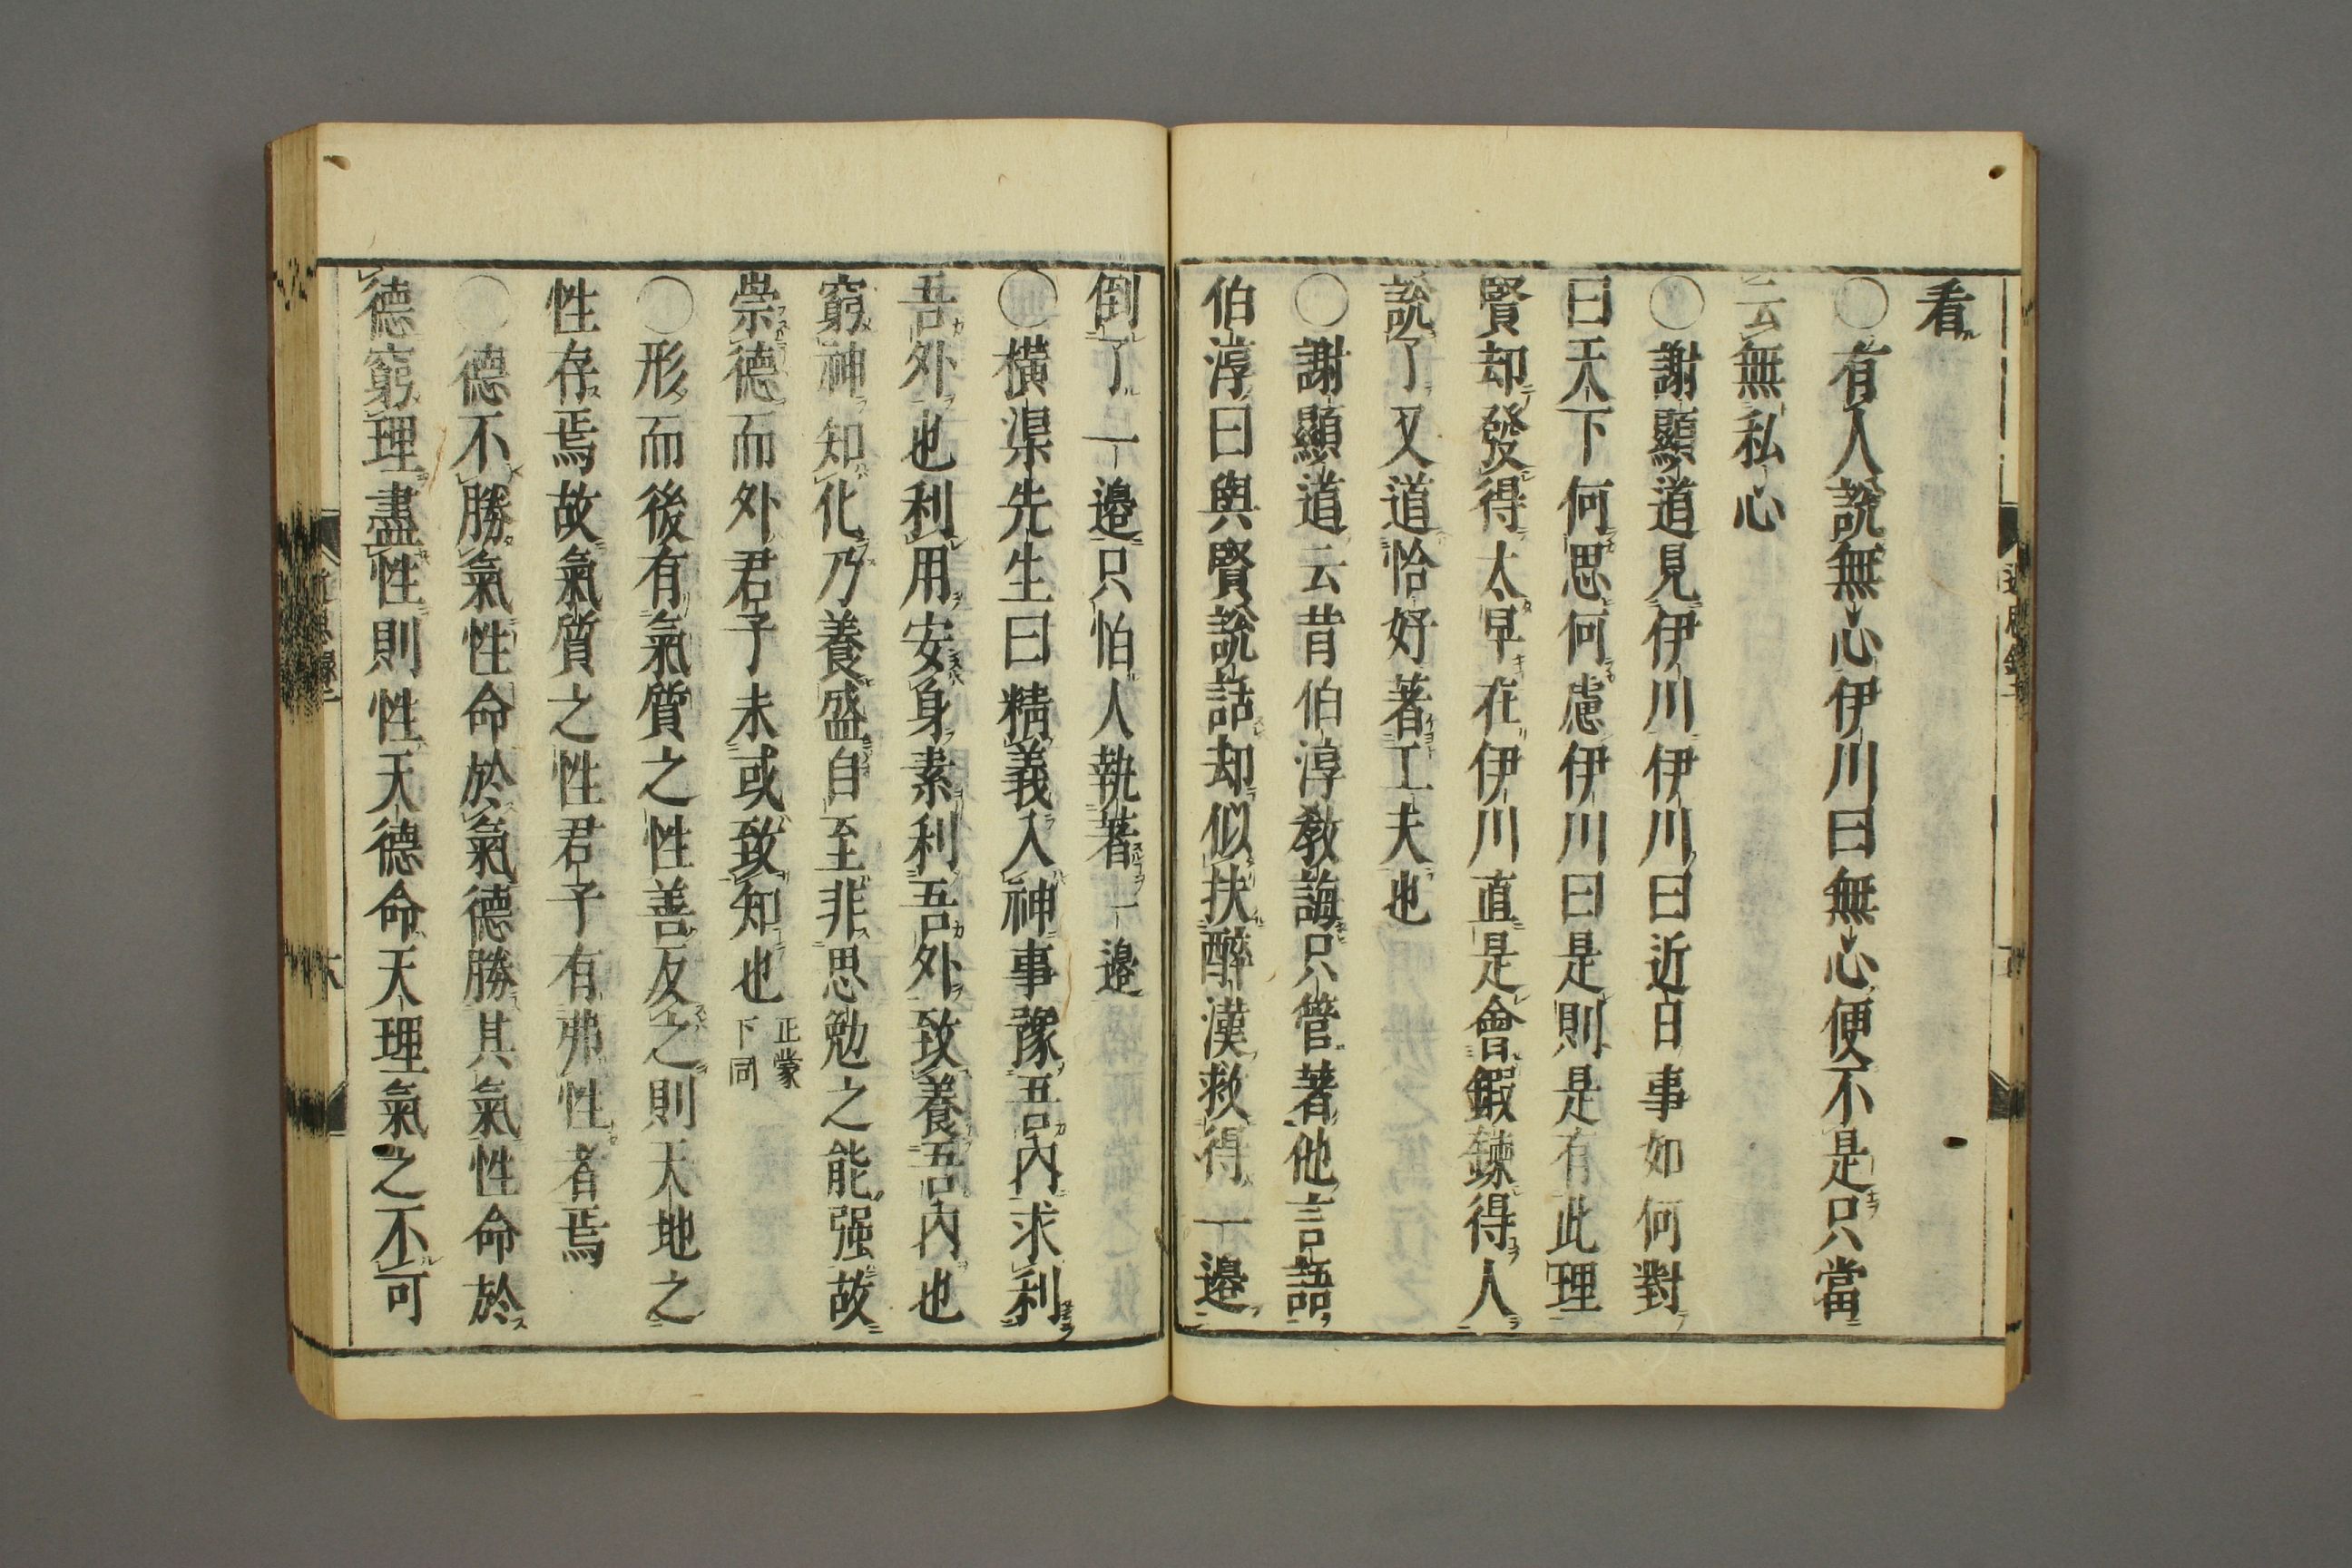 看
○有人說無心伊川曰無心便不是只當
云無私心
○謝顯道見伊川伊川曰近日事如何對
曰天下何思何慮伊川曰是則是有此理
賢却發得太早在伊川直是會鍜鍊得人
說了又道恰好著工夫也
○謝顯道云昔伯淳敎誨只管著他言語
伯淳曰與賢說話却似扶醉漢救得一邊
倒了一邊只怕人執著一邊
○橫渠先生曰精義入神事豫吾內求利
吾外也利用安身素利吾外致養吾內也
窮神知化乃養盛自至非思勉之能强故
崇德而外君子未或致知也 正蒙下同
○形而後有氣質之性善反之則天地之
性存焉故氣質之性君子有弗性者焉
○德不勝氣性命於氣德勝其氣性命於
德窮理盡性則性天德命天理氣之不可
近思錄二
六